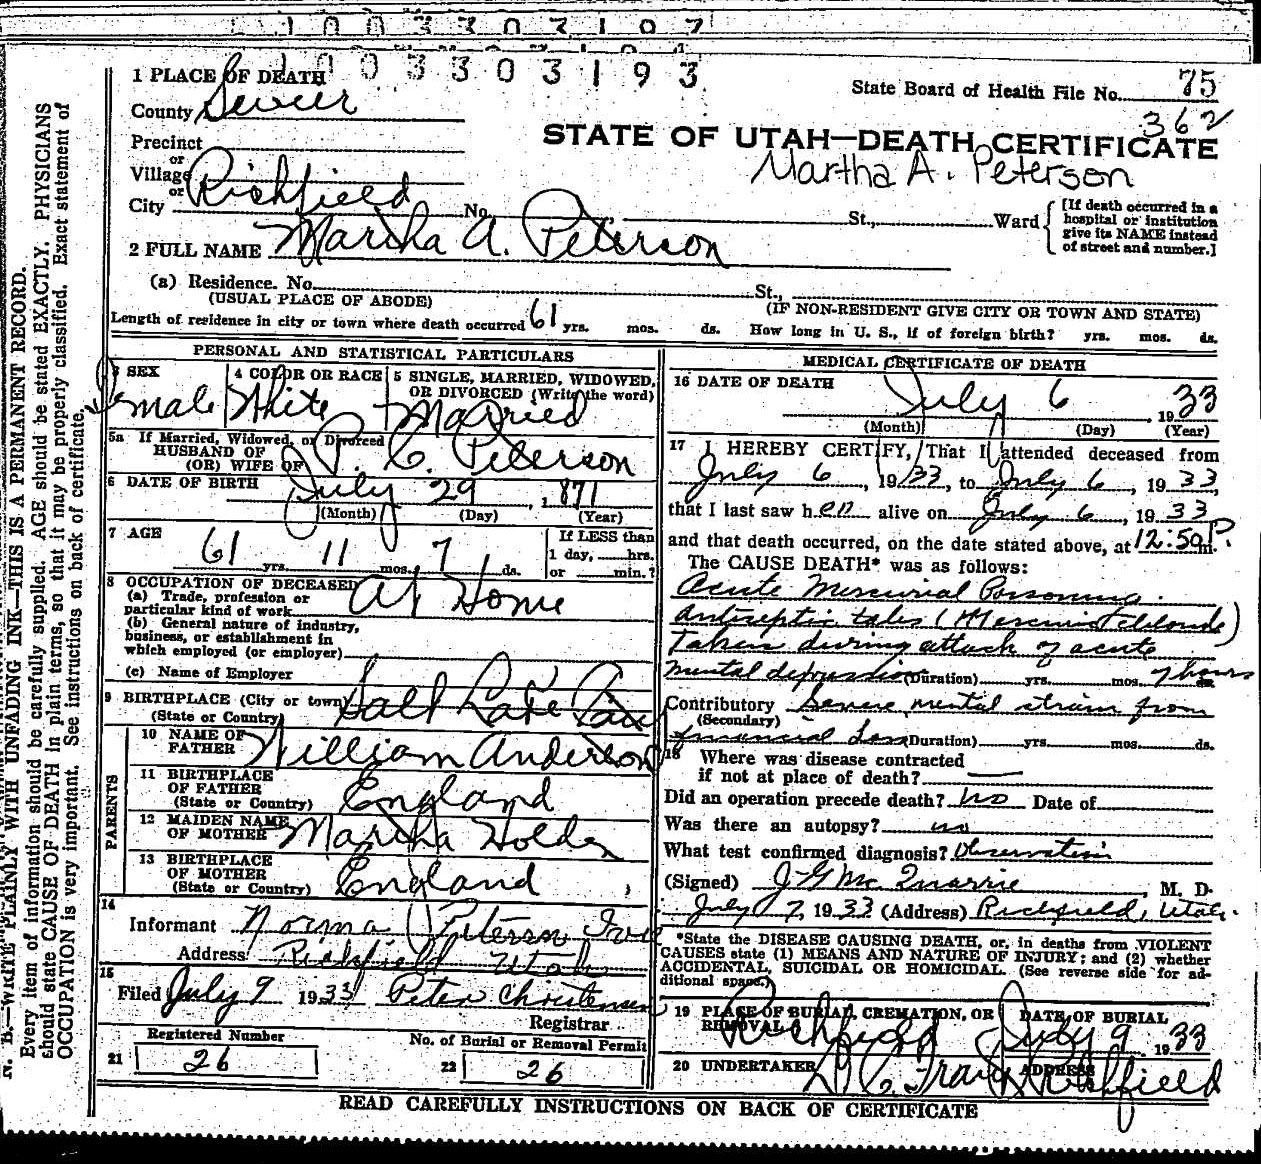 1003303193
1 PLACE OF DEATH
State Board of Health File No. 75
County Sevier
362
STATE OF UTAH—DEATH CERTIFICATE
Precinct
or
Martha A. Peterson
Village
or
City Richfield No. St., Ward
[If death occurred in a
hospital or institution
give its NAME instead
of street and number.]
2 FULL NAME Martha A. Peterson
(a) Residence. No. St.,
(USUAL PLACE OF ABODE) (IF NON-RESIDENT GIVE CITY OR TOWN AND STATE)
Length of residence in city or town where death occurred 61 yrs. mos. ds. How long in U. S., if of foreign birth? yrs. mos. ds.
PERSONAL AND STATISTICAL PARTICULARS
3 SEX 4 COLOR OR RACE 5 SINGLE, MARRIED, WIDOWED,
OR DIVORCED (Write the word)
Female White Married
5a If Married, Widowed, or Divorced
HUSBAND OF
(OR) WIFE OF P. C. Peterson
6 DATE OF BIRTH July 29, 1871
(Month) (Day) (Year)
7 AGE If LESS than
61 yrs. 11 mos. 7 ds. 1 day, hrs.
or min.?
8 OCCUPATION OF DECEASED
(a) Trade, profession or
particular kind of work At Home
(b) General nature of industry,
business, or establishment in
which employed (or employer)
(c) Name of Employer
9 BIRTHPLACE (City or town) Salt Lake
(State or Country)
PARENTS
10 NAME OF
FATHER William Anderson
11 BIRTHPLACE
OF FATHER England
(State or Country)
12 MAIDEN NAME
OF MOTHER Martha Holden
13 BIRTHPLACE
OF MOTHER England
(State or Country)
14
Informant Norma Peterson
Address Richfield Utah
15
Filed July 9 1933 Peter Christensen
Registrar
Registered Number No. of Burial or Removal Permit
21 26 22 26
MEDICAL CERTIFICATE OF DEATH
16 DATE OF DEATH July 6 1933
(Month) (Day) (Year)
17 I HEREBY CERTIFY, That I attended deceased from
July 6, 1933, to July 6, 1933,
that I last saw her alive on July 6, 1933
and that death occurred, on the date stated above, at 12:50 P m.
The CAUSE DEATH* was as follows:
Acute Mercurial Poisoning.
Antiseptic tables (Mercuric
Taken during attack of acute
mental depression (Duration) yrs. mos. 7 hours ds.
Contributory Severe mental strain from
(Secondary)
financial Loss (Duration) yrs. mos. ds.
18 Where was disease contracted
if not at place of death? —
Did an operation precede death? No Date of
Was there an autopsy? no
What test confirmed diagnosis? Observation
(Signed) J G McQuarrie, M. D.
July 7, 1933 (Address) Richfield, Utah.
*State the DISEASE CAUSING DEATH, or, in deaths from VIOLENT
CAUSES state (1) MEANS AND NATURE OF INJURY; and (2) whether
ACCIDENTAL, SUICIDAL OR HOMICIDAL. (See reverse side for ad-
ditional space.)
19 PLACE OF BURIAL, CREMATION, OR DATE OF BURIAL
REMOVAL Richfield July 9 1933
20 UNDERTAKER ADDRESS
Richfield
READ CAREFULLY INSTRUCTIONS ON BACK OF CERTIFICATE
N. B.—WRITE PLAINLY WITH UNFADING INK—THIS IS A PERMANENT RECORD.
Every item of information should be carefully supplied. AGE should be stated EXACTLY. PHYSICIANS
should state CAUSE OF DEATH in plain terms, so that it may be properly classified. Exact statement of
OCCUPATION is very important. See instructions on back of certificate.